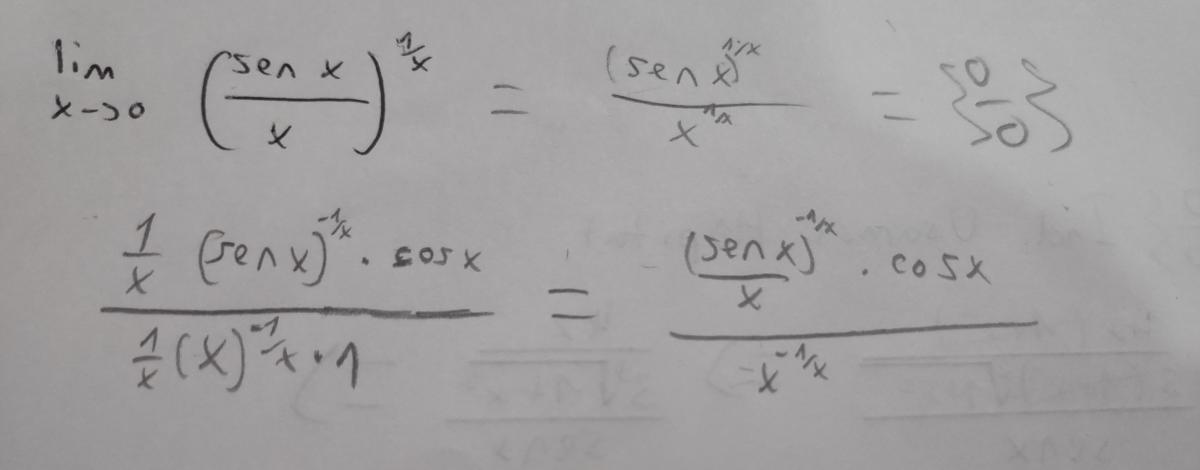 lim x->0 (sen x / x)^1/x = (sen x)^1/x / x^1/x = {0/0}
1/x (sen x)^-1/x · cos x / 1/x (x)^-1/x · 1 = (sen x / x)^-1/x · cos x / x^-1/x